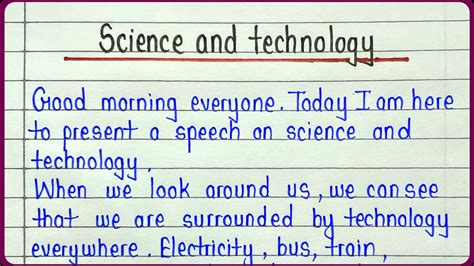 Science and technology
Good morning everyone. Today I am here
to present a speech on science and
technology.
When we look around us, we can see
that we are surrounded by technology
everywhere. Electricity, bus, train,